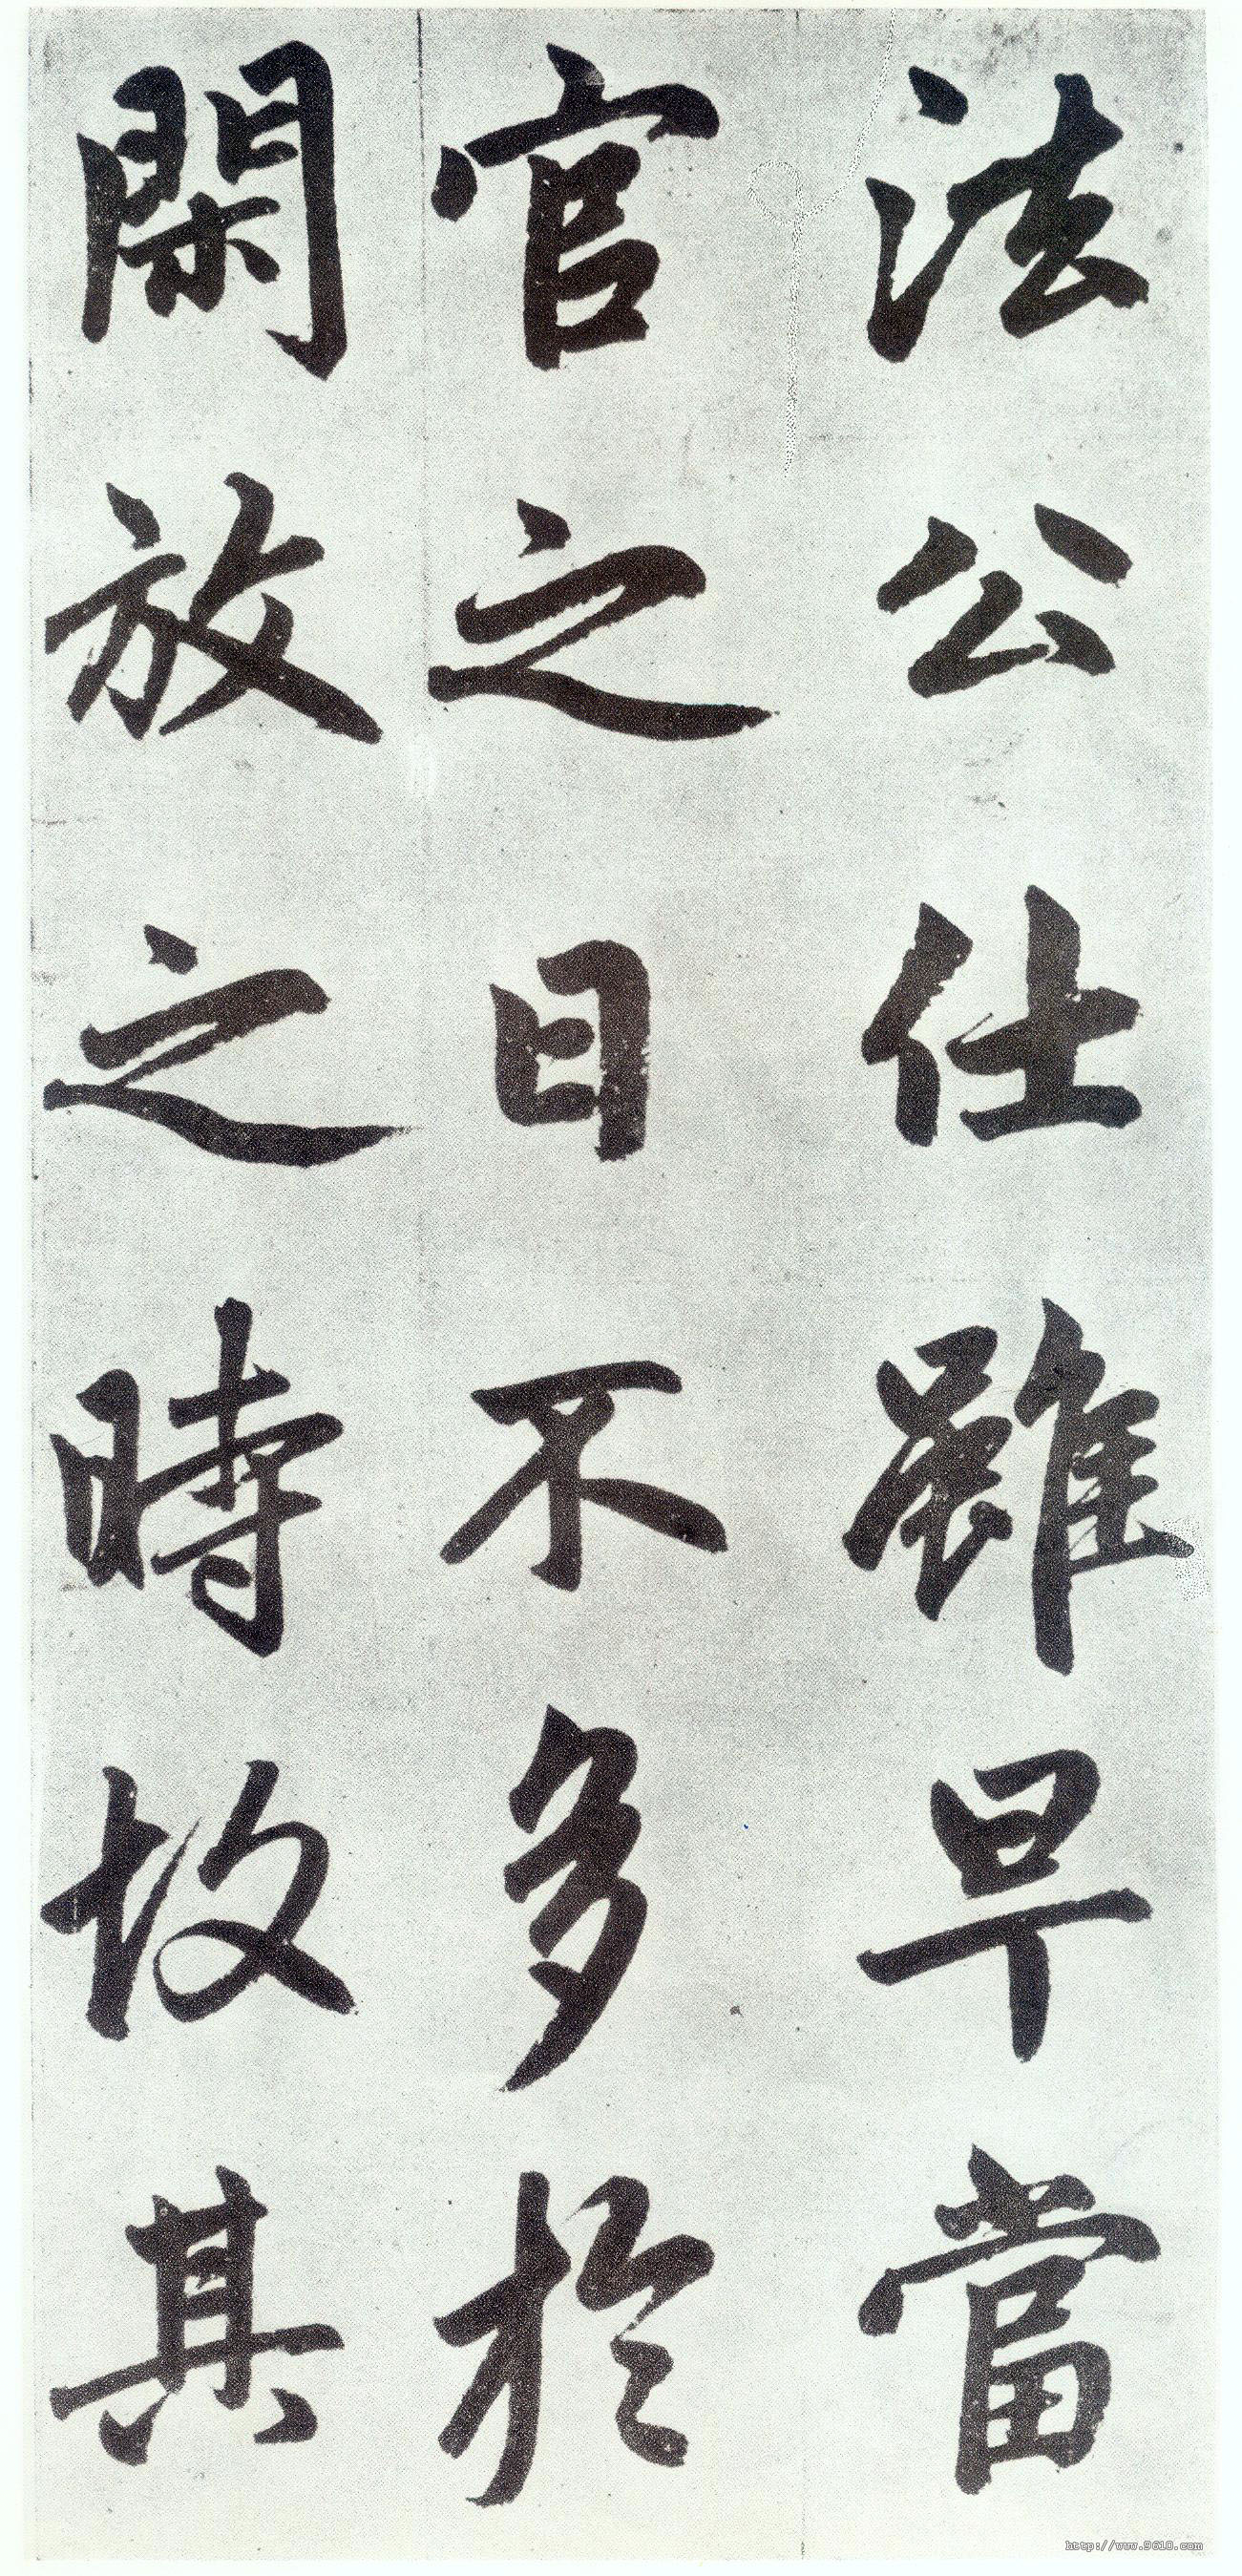 法公仕雖早當
官之日不多於
閑放之時故其
http://www.9610.com